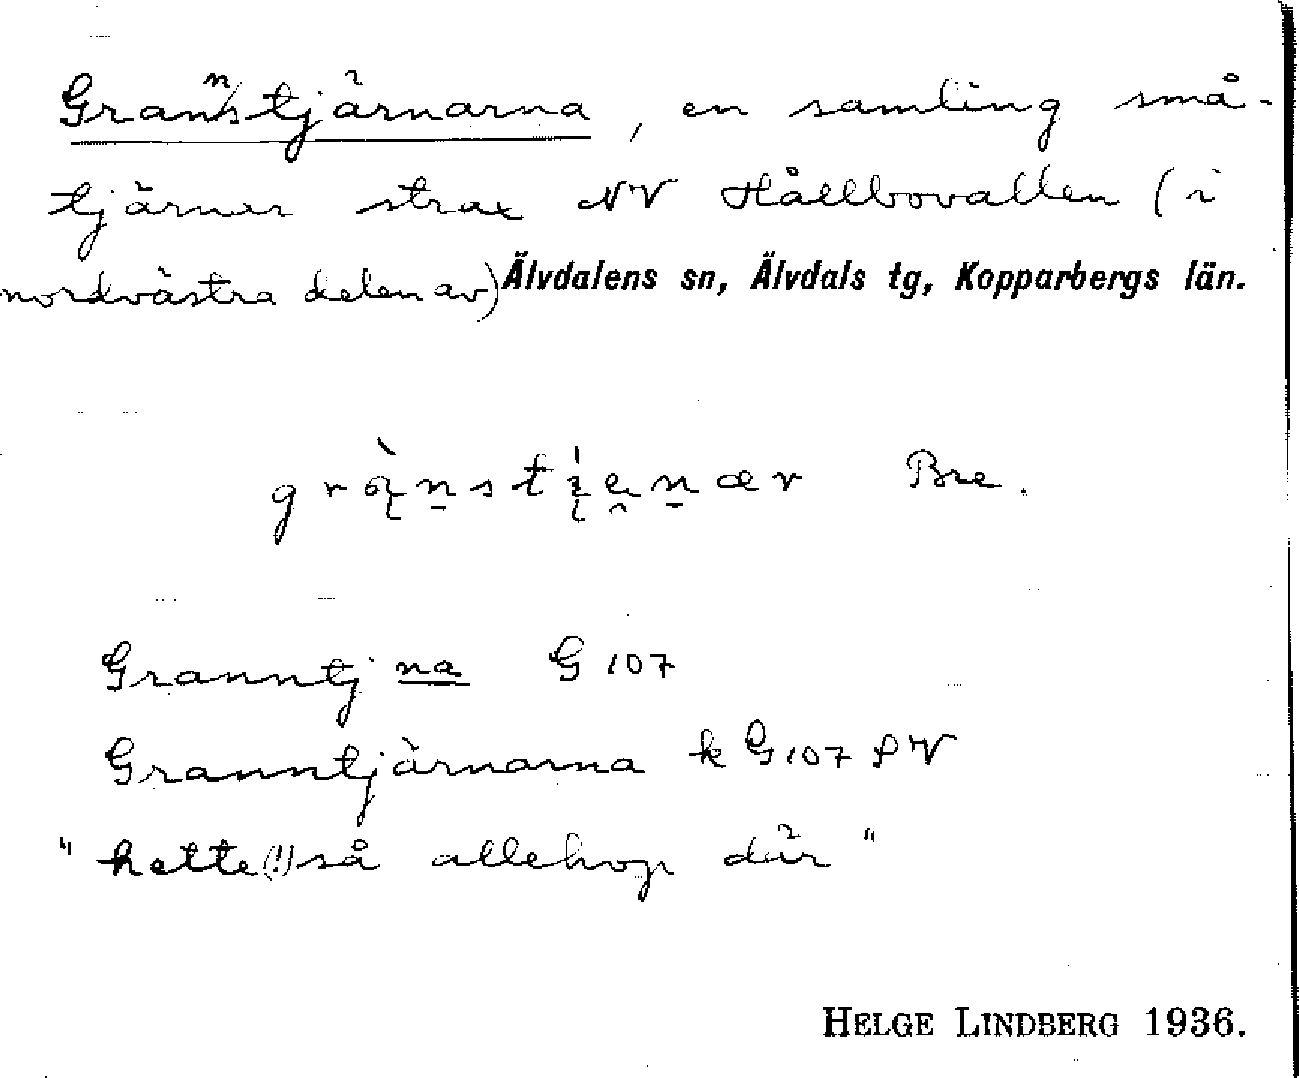 Granntjärnarna, en samling små-
tjärnar strax NV Hållbovallen (i
nordvästra delen av) Älvdalens sn, Älvdals tg, Kopparbergs län.
Bre.
Granntj na G 107
Granntjärnarna k G 107 SV
"hette (!) så allehop där"
HELGE LINDBERG 1936.